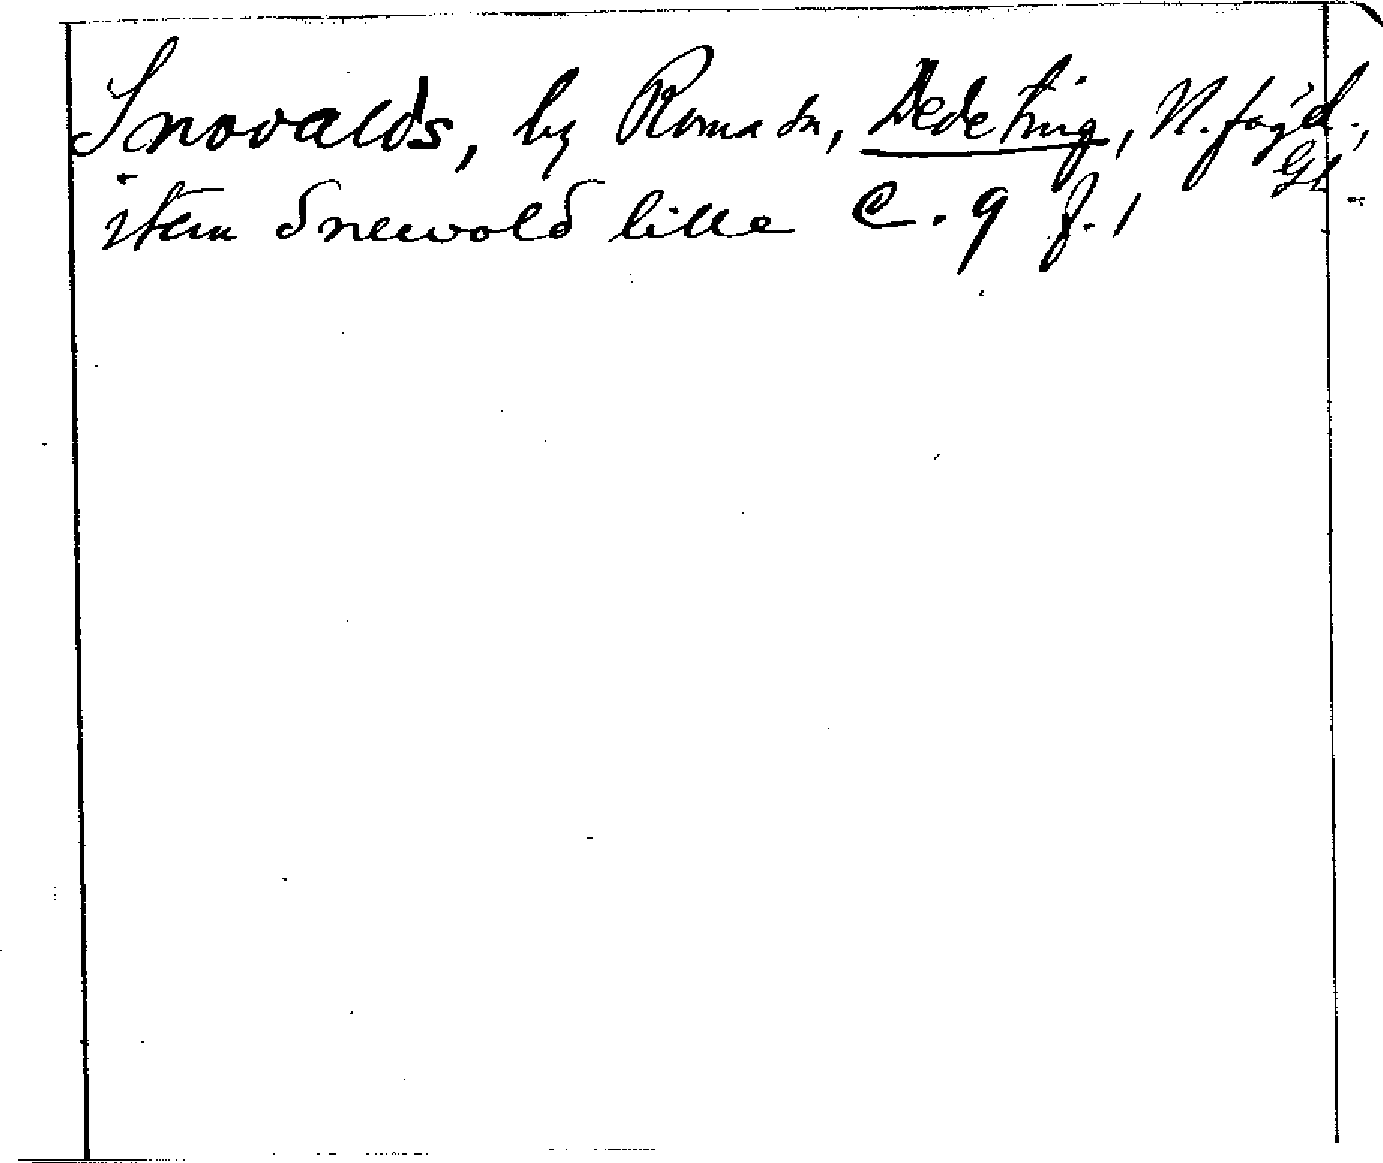 Snovalds, by Roma sn, Hede ting, N. fög'd.,
Gtl.
item Snewold lille C. 9 f. 1